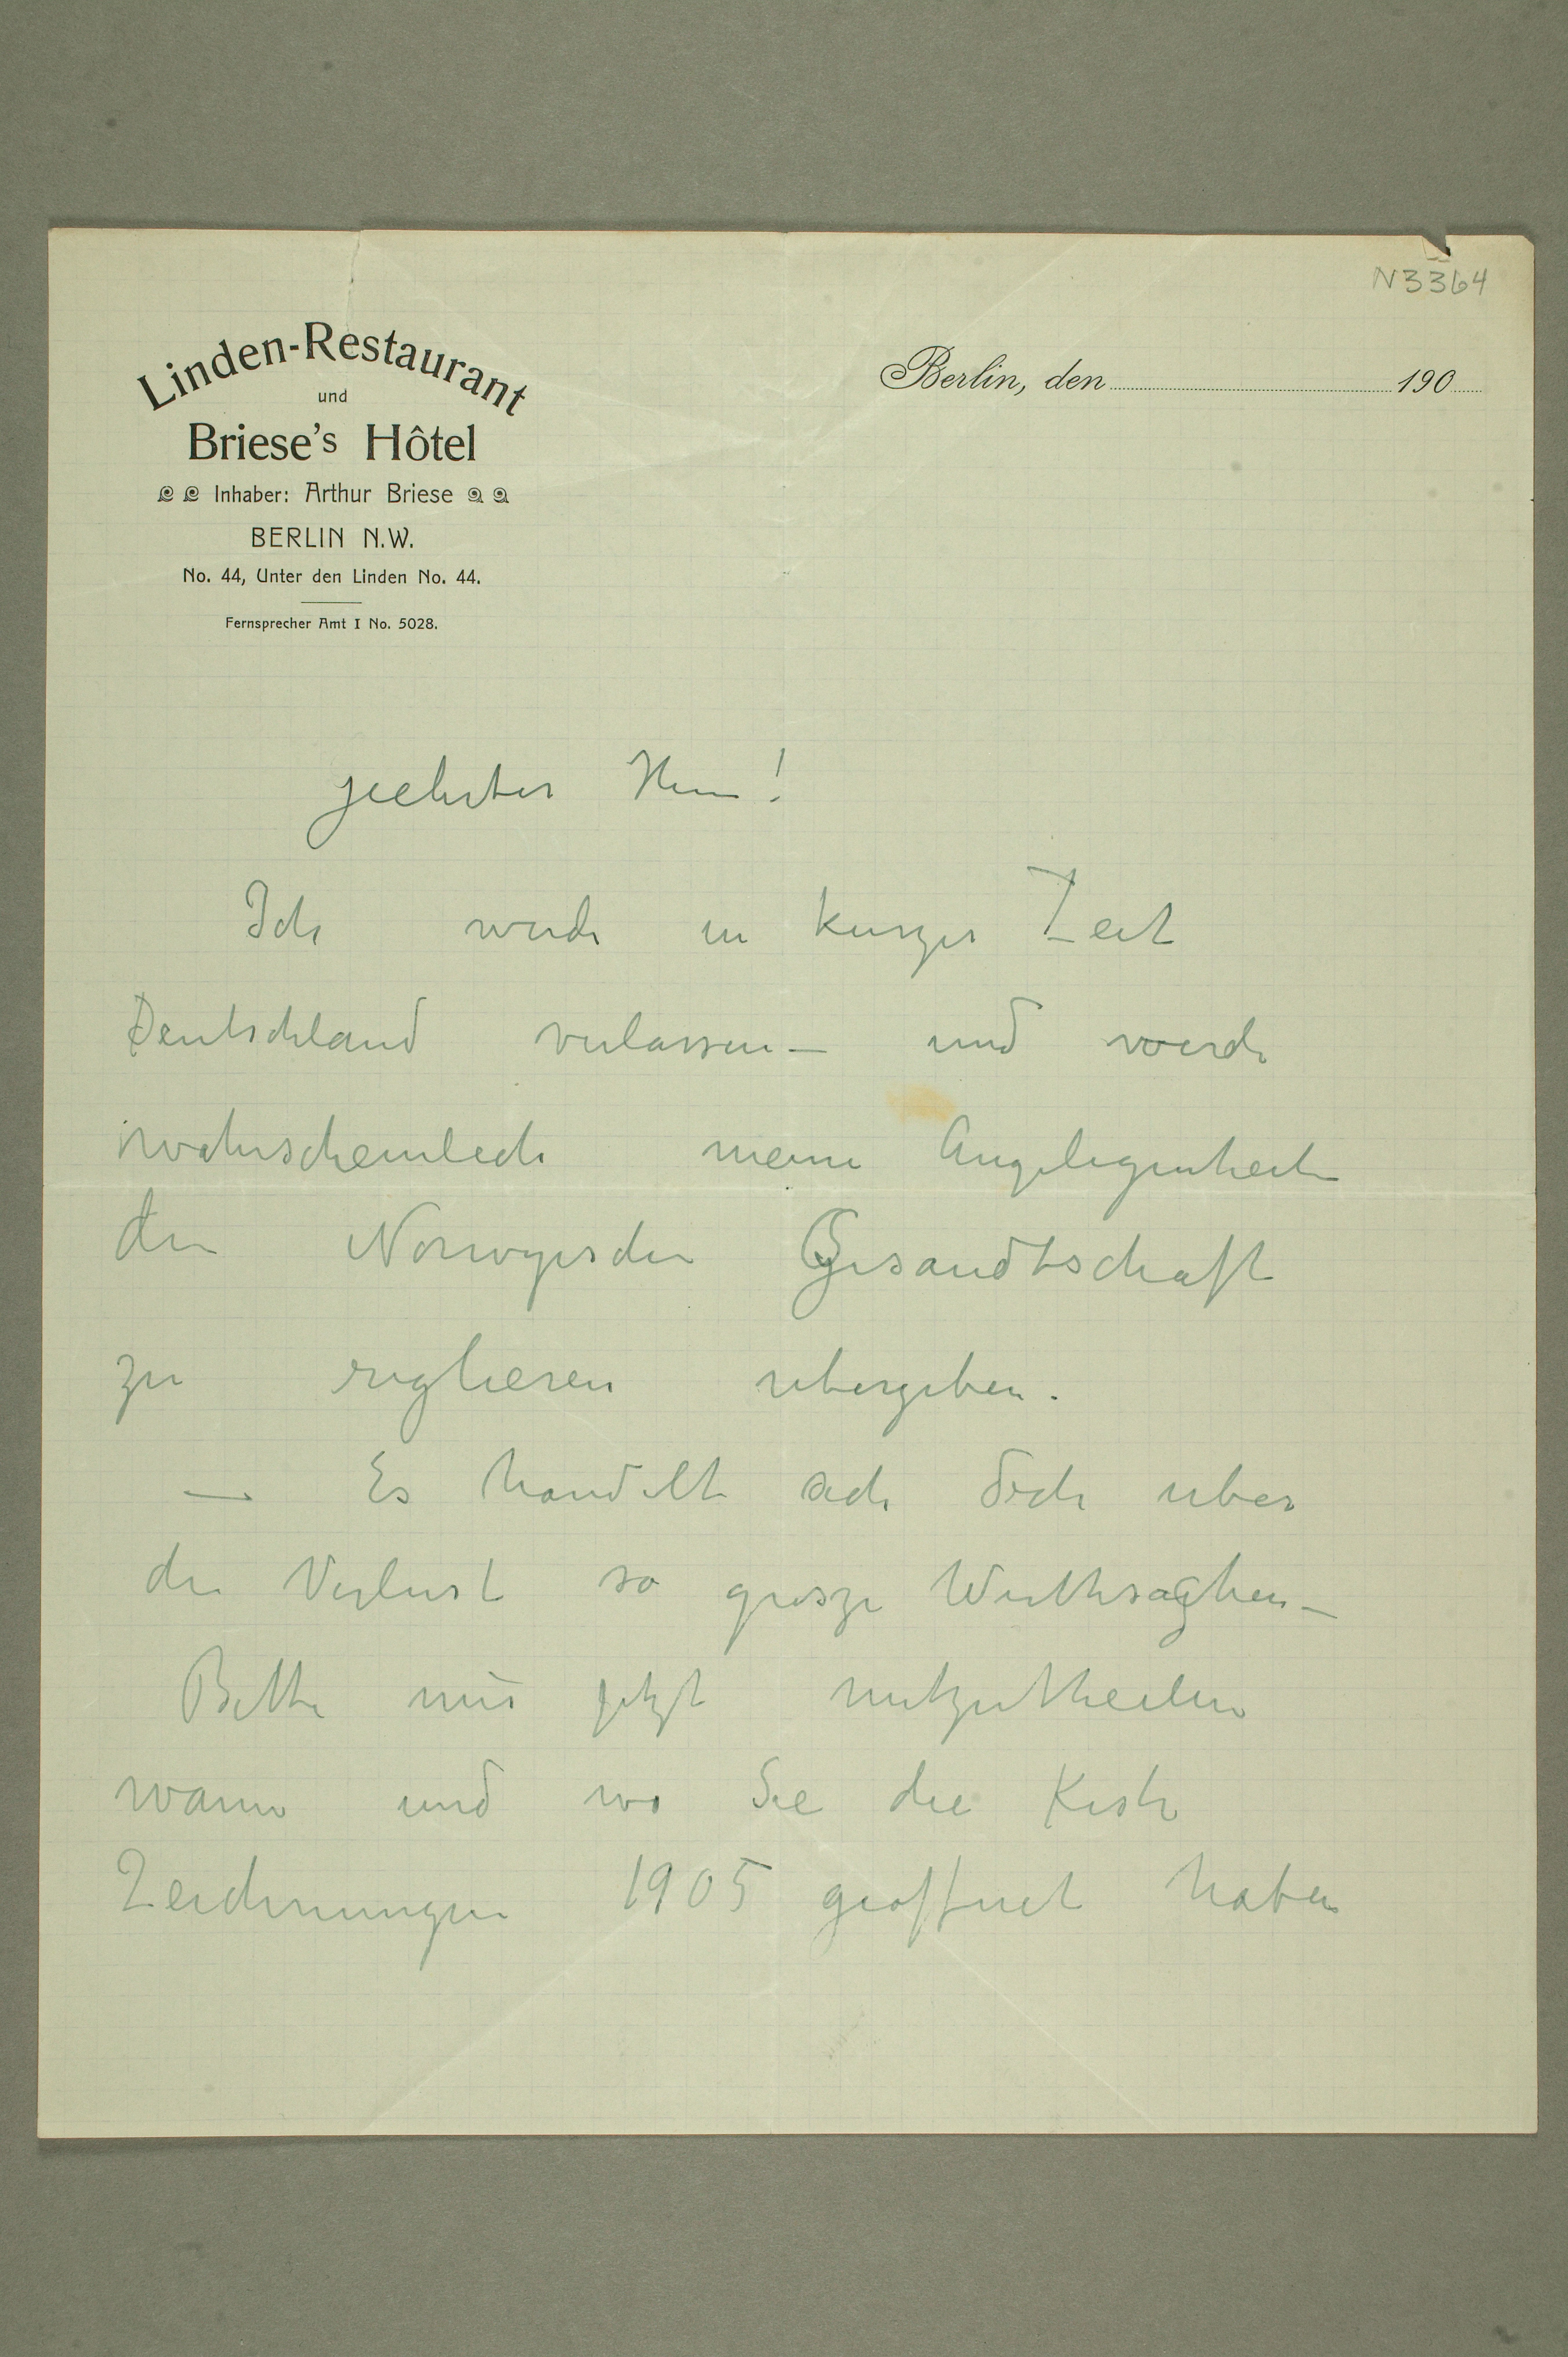 N 3364
Linden-Restaurant
und
Briese's Hôtel
Inhaber: Arthur Briese
BERLIN N.W.
No. 44, Unter den Linden No. 44.
Fernsprecher Amt I No. 5028.
Berlin, den 190
geehrter Herr!
Ich werde in kurzer Zeit
Deutschland verlassen – und werde
wahrscheinlich meine Angelegenheit
der Norwegischen Gesandtschaft
zu reglieren ubergeben.
— Es handelt sich doch uber
den Verlust so grosze Werthsachen –
Bitte mir jetzt mitzutheilen
wann und wo Sie die Kiste
Zeichnungen 1905 geoffnet haben